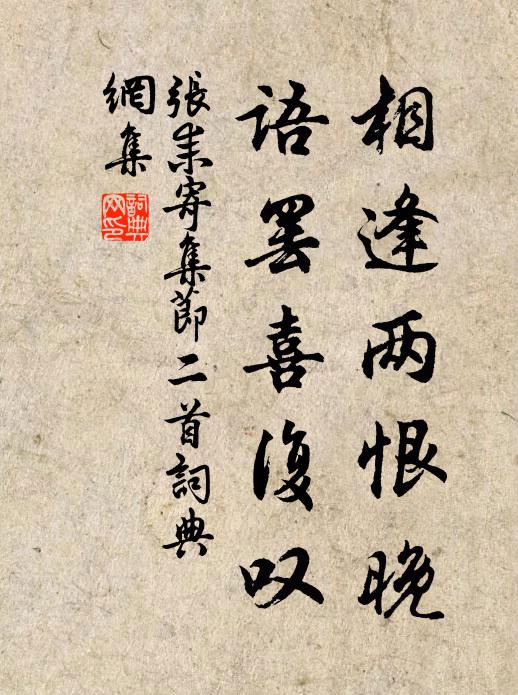 相逢两恨晚
语罢喜復叹
張耒寄集節二首詞典
網集
詞典
网印